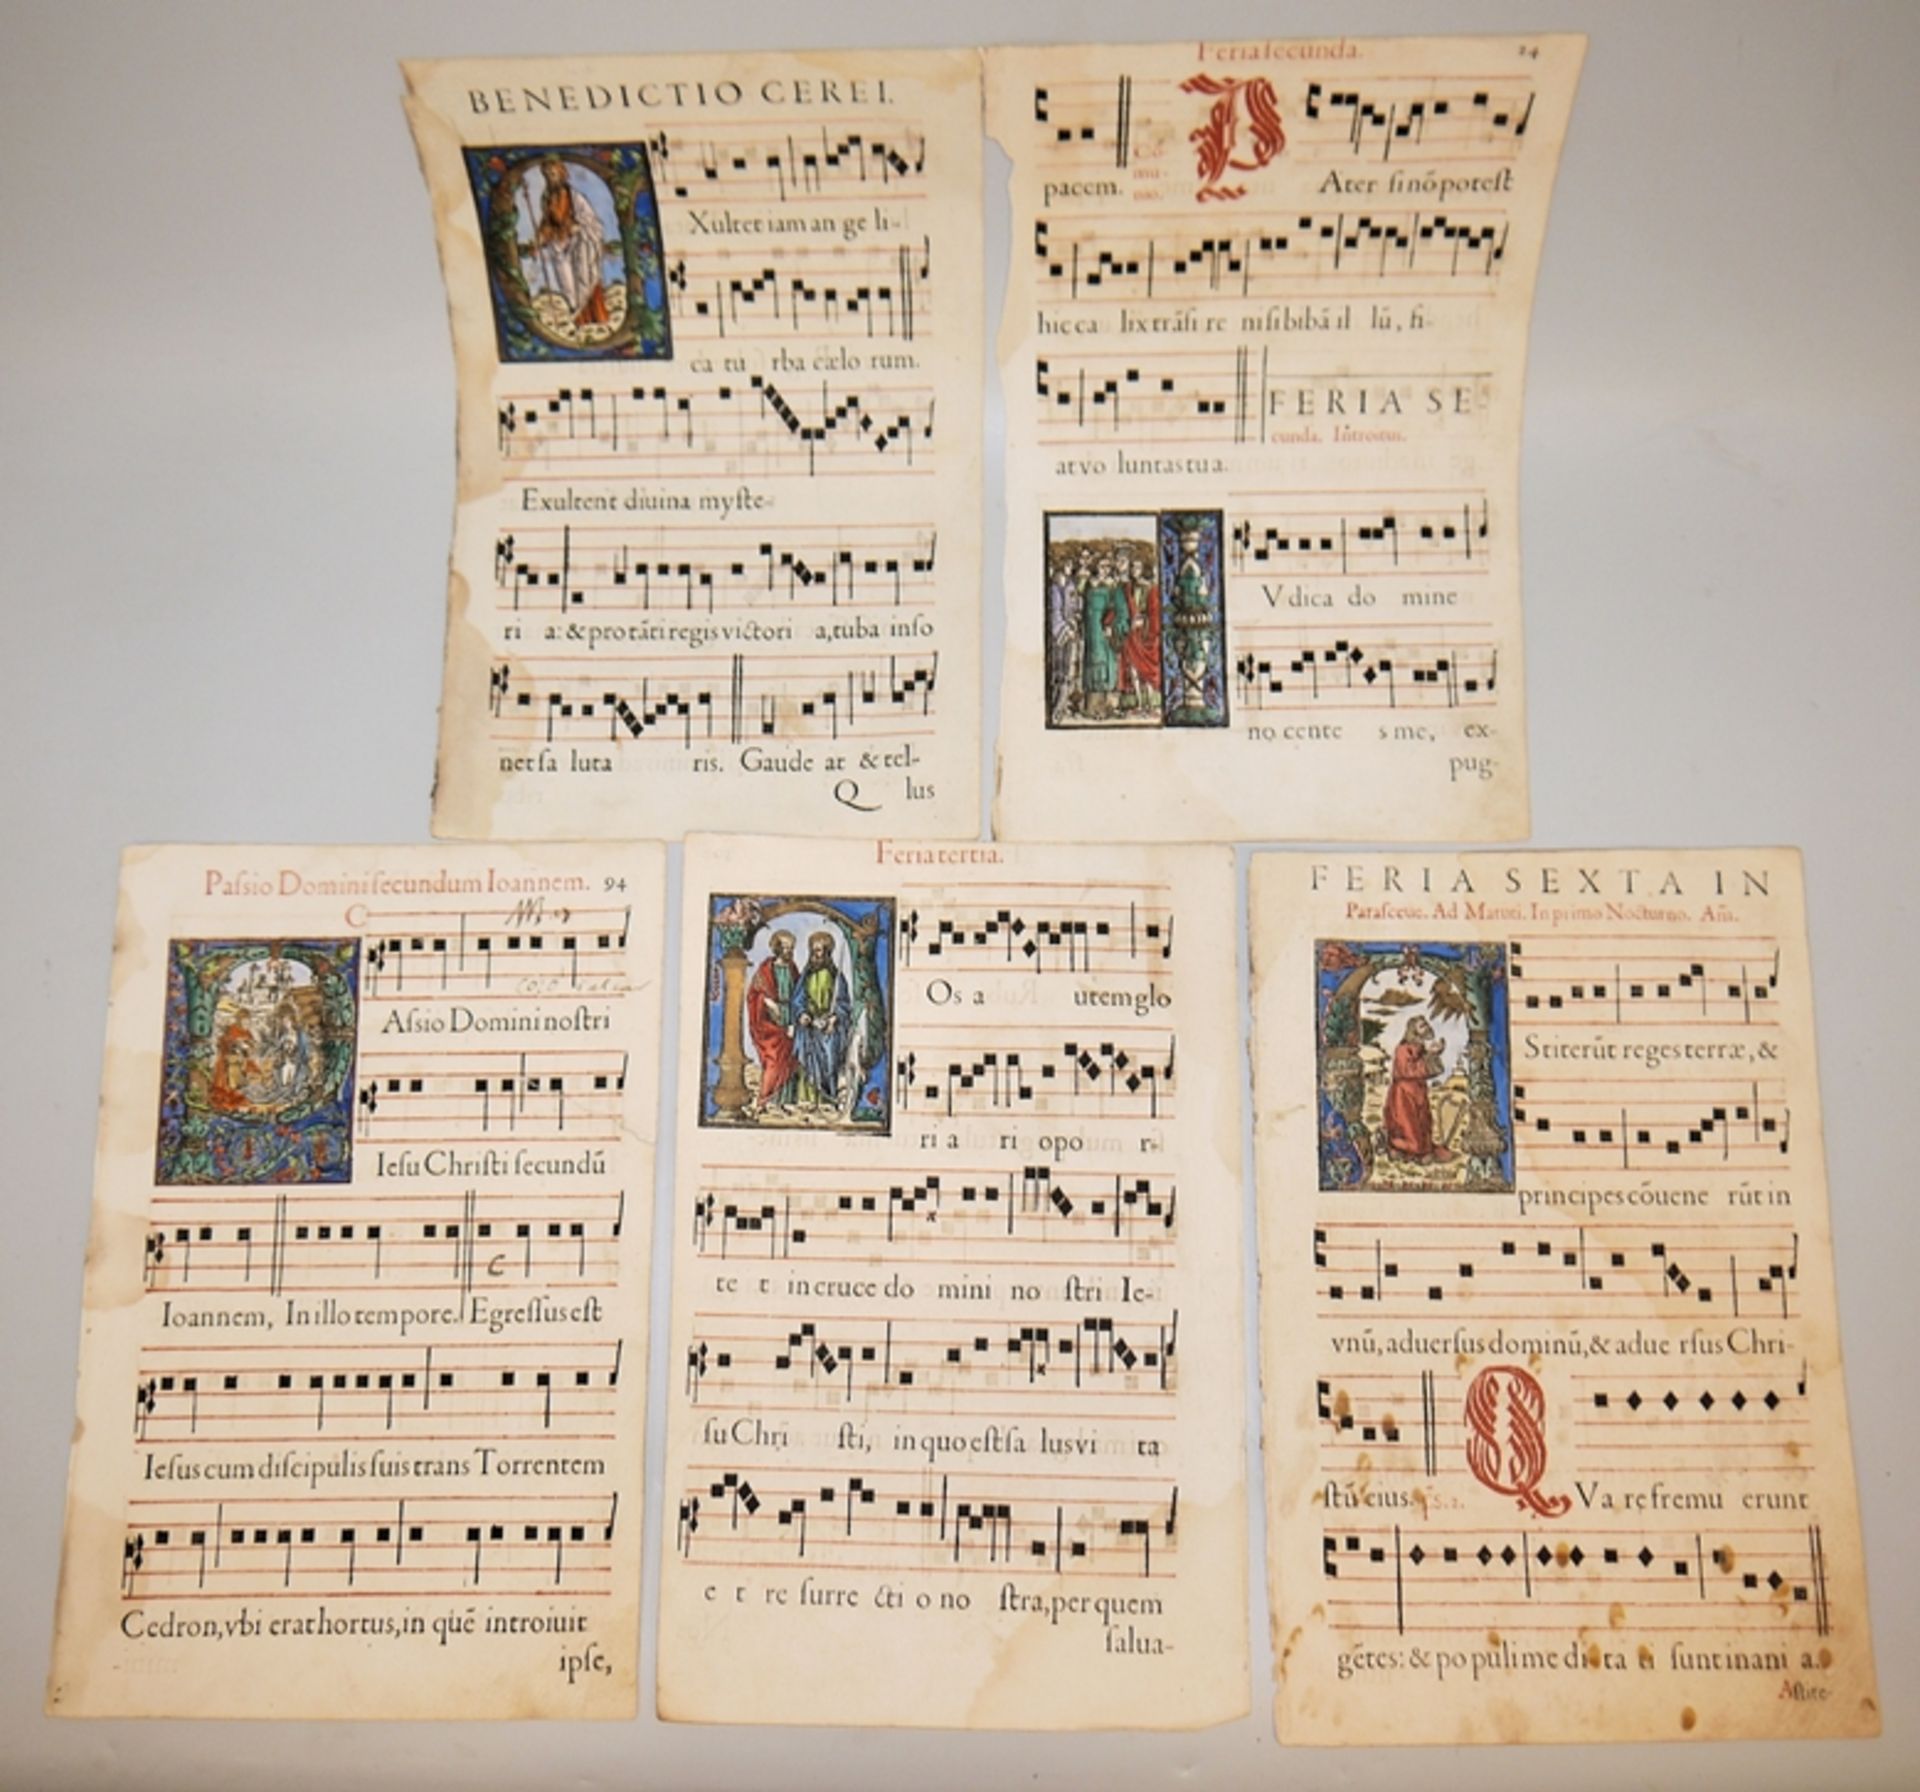 BENEDICTIO CEREI.
Xultet iam an ge li-
ca tu rba cælo rum.
Exultent diuina myſte-
ri a: & pro tāti regis victori a, tuba inſo
net ſa luta ris. Gaude at & tel-
Q lus
Feria ſecunda. 24
pacem. Cō mu- nio. P Ater ſi nō poteſt
hic ca lix trāſi re niſi bibā il lū, fi-
at vo luntas tua.
FERIA SE-
cunda. Introitus.
Vdica do mine
no cente s me, ex-
pug-
Paſsio Domini ſecundum Ioannem. 94
C
Aſsio Domini noſtri
Ieſu Chriſti ſecundū
C
Ioannem, In illo tempore. Egreſſus eſt
Ieſus cum diſcipulis ſuis trans Torrentem
Cedron, vbi erat hortus, in quē introiuit
ipſe,
Feria tertia.
Os a utem glo
ri a ri opo r-
te t in cruce do mini no ſtri Ie-
ſu Chri ſti, in quo eſt ſa lus vi ta
e t re ſurre cti o no ſtra, per quem
ſalua-
FERIA SEXTA IN
Paraſceue. Ad Matuti. In primo Nocturno. Aña.
Stiterūt reges terræ, &
principes cōuene rūt in
vnū, aduerſus dominū, & adue rſus Chri-
ſtū eius. Pſ. 2. Q Va re fremu erunt
gētes: & po puli me dita ti ſunt inani a.
Aſtite-